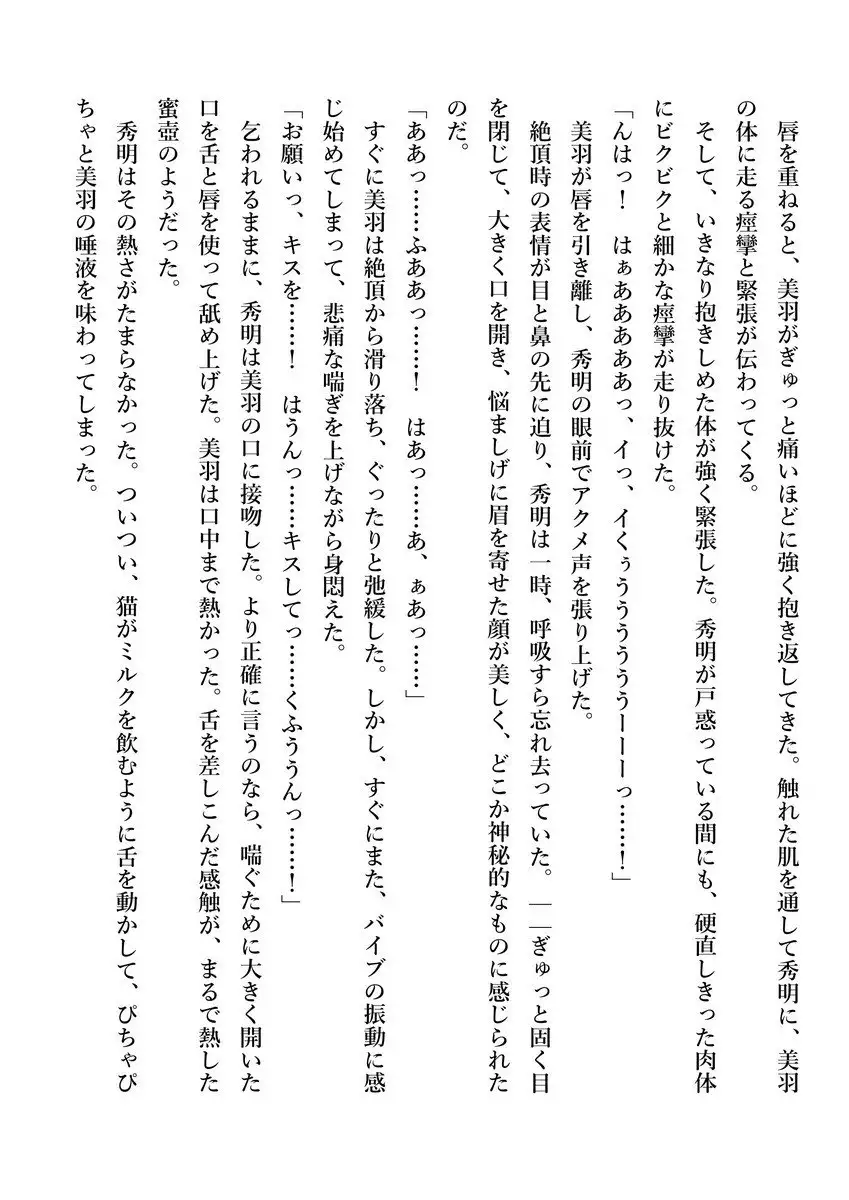 唇を重ねると、美羽がぎゅっと痛いほどに強く抱き返してきた。触れた肌を通して秀明に、美羽
の体に走る痙攣と緊張が伝わってくる。
　そして、いきなり抱きしめた体が強く緊張した。秀明が戸惑っている間にも、硬直しきった肉体
にビクビクと細かな痙攣が走り抜けた。
「んはっ！　はぁああああっ、イっ、イくぅうううううーーーっ……！」
　美羽が唇を引き離し、秀明の眼前でアクメ声を張り上げた。
　絶頂時の表情が目と鼻の先に迫り、秀明は一時、呼吸すら忘れ去っていた。――ぎゅっと固く目
を閉じて、大きく口を開き、悩ましげに眉を寄せた顔が美しく、どこか神秘的なものに感じられた
のだ。
「ああっ……ふああっ……！　はあっ……あ、ぁあっ……」
　すぐに美羽は絶頂から滑り落ち、ぐったりと弛緩した。しかし、すぐにまた、バイブの振動に感
じ始めてしまって、悲痛な喘ぎを上げながら身悶えた。
「お願いっ、キスを……！　はうんっ……キスしてっ……くふううんっ……！」
　乞われるままに、秀明は美羽の口に接吻した。より正確に言うのなら、喘ぐために大きく開いた
口を舌と唇を使って舐め上げた。美羽は口中まで熱かった。舌を差しこんだ感触が、まるで熱した
蜜壺のようだった。
　秀明はその熱さがたまらなかった。ついつい、猫がミルクを飲むように舌を動かして、ぴちゃぴ
ちゃと美羽の唾液を味わってしまった。